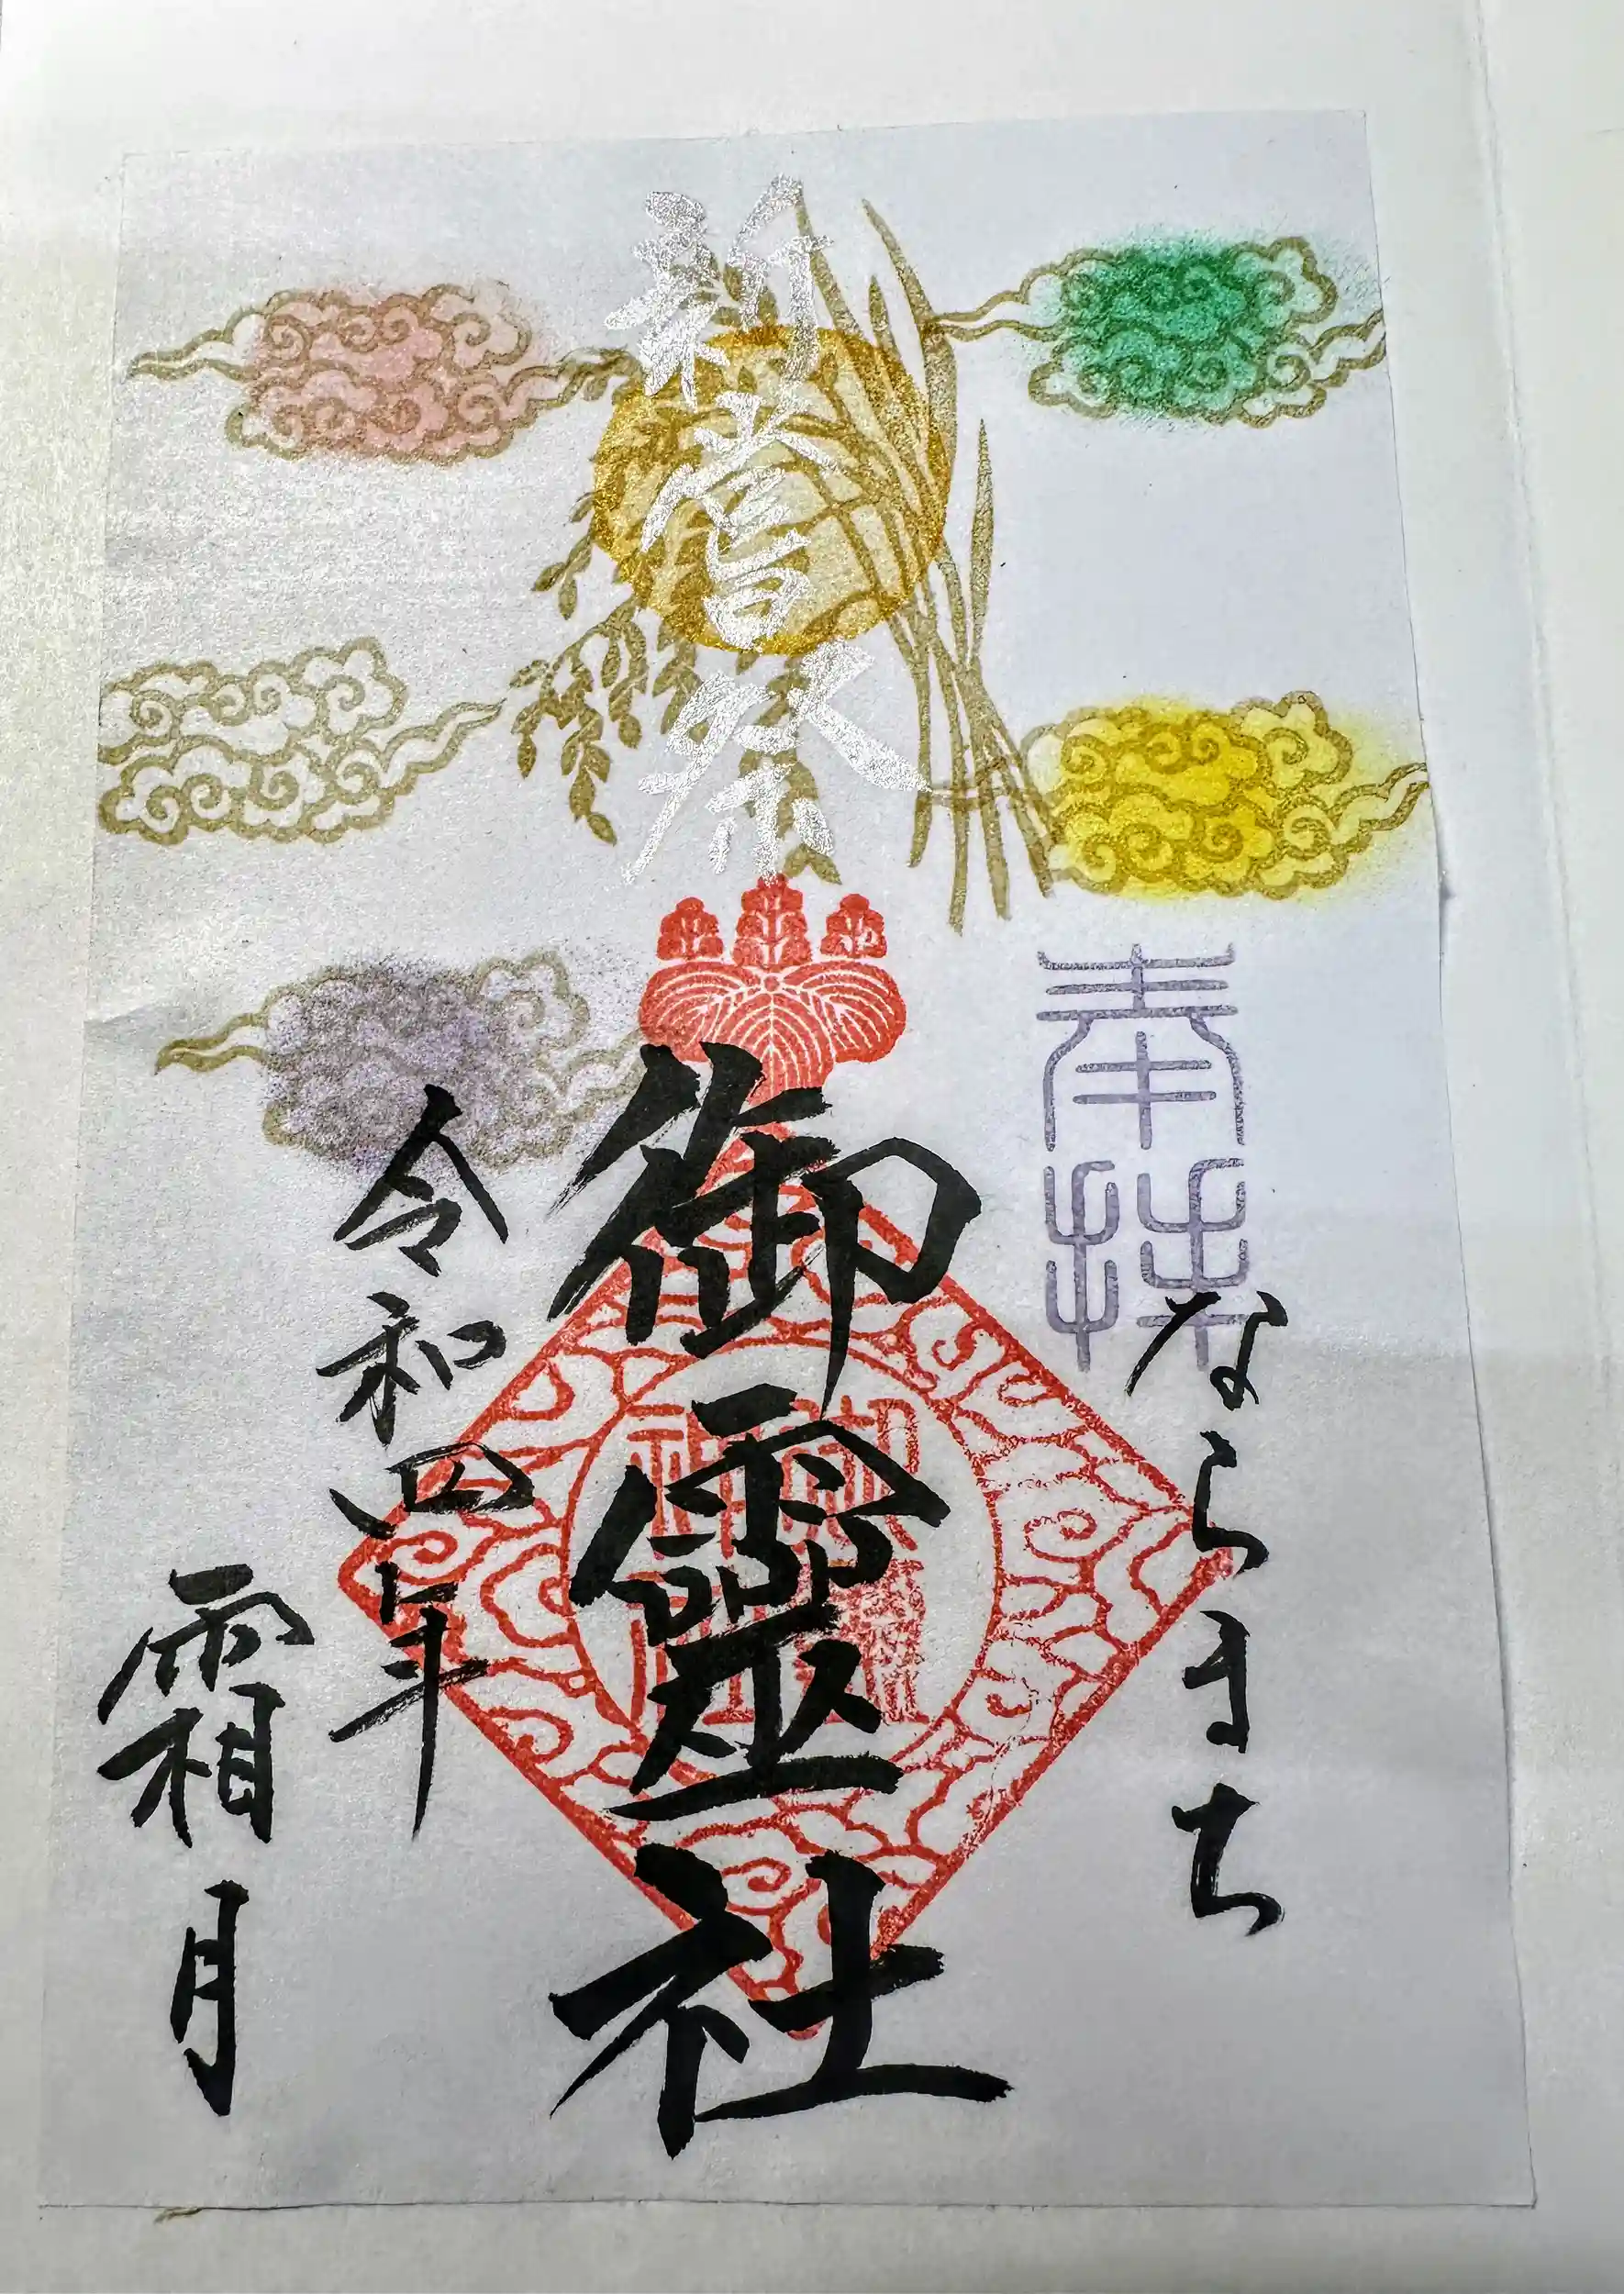 奉拝
ならまち
新嘗祭
御靈社
令和四年
霜月